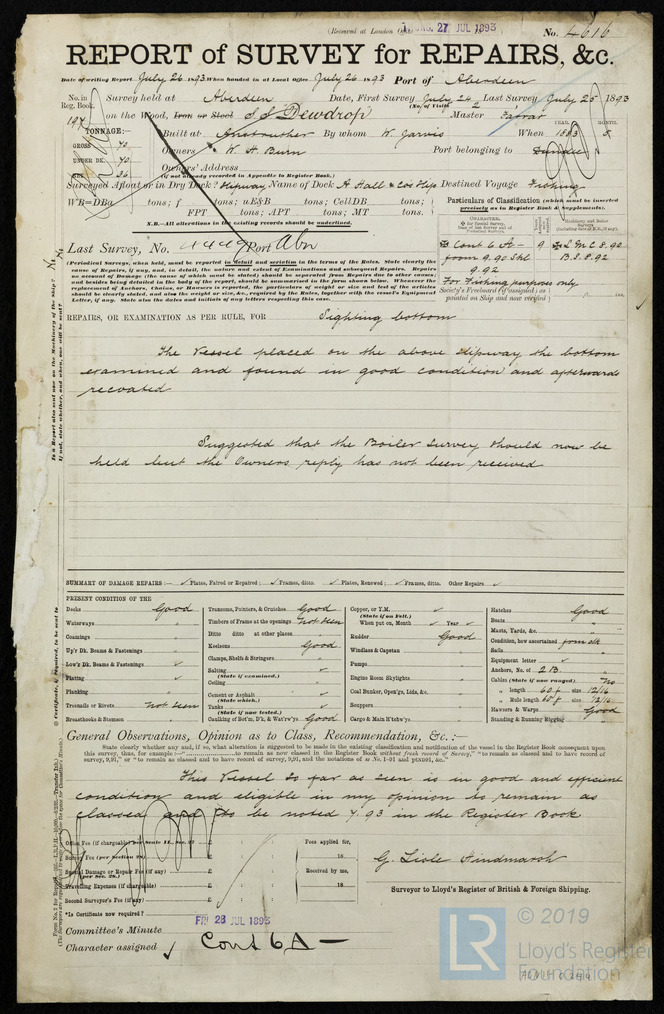 (Received at London Office 27 JUL 1893) No. 4616
REPORT of SURVEY for REPAIRS, &c.
Date of writing Report July 26 1893 When handed in at Local Office July 26 1893 Port of Aberdeen
No. in Reg. Book. Survey held at Aberdeen Date, First Survey July 24 Last Survey July 25 1893
(No. of Visits 2)
197 on the Wood, Iron or Steel S.S. Dewdrop Master
TONNAGE:— Built at Anstruther By whom W. Jarvis When 1883 8
YEAR. MONTH.
GROSS 40
Owners W. H. Burn Port belonging to Dundee
UNDER DK. 40
Owners' Address
(If not already recorded in Appendix to Register Book.)
NETT 26
Surveyed Afloat or in Dry Dock? Slipway Name of Dock A Hall & Cos Slip Destined Voyage Fishing
WB=DBa tons; f tons; uE&B tons; CellDB tons;
FPT tons; APT tons; MT tons.
N.B.—All alterations in the existing records should be underlined.
Particulars of Classification (which must be inserted precisely as in Register Book & Supplements).
Last Survey, No. Port Abn
(Periodical Surveys, when held, must be reported in detail and seriatim in the terms of the Rules. State clearly the
cause of Repairs, if any, and, in detail, the nature and extent of Examinations and subsequent Repairs. Repairs
on account of Damage (the cause of which must be stated) should be separated from Repairs due to other causes;
and besides being detailed in the body of the report, should be summarised in the form shown below. Whenever the
replacement of Anchors, Chains, or Hawsers is reported, the particulars of weight or size and test of the articles
should be clearly stated, and also the weight or size, &c., required by the Rules, together with the vessel's Equipment
Letter, if any. State also the dates and initials of any letters respecting this case.
Cont 6 A— 9 LMC 8.90
from 9.90 Shl B.S. 8.92
9.92
For Fishing purposes only
Society's Freeboard (if assigned) as
painted on Ship and now verified
REPAIRS, OR EXAMINATION AS PER RULE, FOR Sighting bottom
The Vessel placed on the above slipway the bottom
examined and found in good condition and afterwards
recoated
Suggested that the Boiler Survey should now be
held but the Owners reply has not been received
SUMMARY OF DAMAGE REPAIRS:— Plates, Faired or Repaired; Frames, ditto. Plates, Renewed; Frames, ditto. Other Repairs
PRESENT CONDITION OF THE
Decks Good
Waterways "
Coamings "
Up'r Dk. Beams & Fastenings
Low'r Dk. Beams & Fastenings
Plating
Planking
Treenails or Rivets not seen
Breasthooks & Stemson "
Transoms, Pointers, & Crutches Good
Timbers of Frame at the openings not seen
Ditto ditto at other places "
Keelsons Good
Clamps, Shelfs & Stringers "
Salting
(State if examined.)
Ceiling "
Cement or Asphalt
(State which.)
Tanks
(State if now tested.)
Caulking of Bot'm, D'k, & Wat'rw'ys Good
Copper, or Y.M.
(State if on Felt.)
When put on, Month Year
Rudder Good
Windlass & Capstan "
Pumps "
Engine Room Skylights "
Coal Bunker, Open'gs, Lids, &c. "
Scuppers "
Cargo & Main H'tchw'ys "
Hatches Good
Boats "
Masts, Yards, &c. "
Condition, how ascertained from dk
Sails "
Equipment letter
Anchors, No. of 2 B
Cables (State if now ranged) no
" length 60 f size 12/16
Hawsers & Warps Good
Standing & Running Rigging "
General Observations, Opinion as to Class, Recommendation, &c.:—
State clearly whether any, and if so, what alteration is suggested to be made in the existing classification and notification of the vessel in the Register Book consequent upon
this survey, thus, for example:—" to remain as now classed in the Register Book without fresh record of Survey," "to remain as classed and to have record of
survey, 9,91," or "to remain as classed and to have record of survey, 9,91, and the notations of
This Vessel so far as seen is in good and efficient
condition and eligible in my opinion to remain as
classed and to be noted 7.93 in the Register Book
Office Fee (if chargeable) per Scale II., Sec. 27 £
Survey Fee (per Section 28) £
Special Damage or Repair Fee (if any) £
(per Sec. 28.)
Travelling Expenses (if chargeable) £
Second Surveyor's Fee (if any) £
Fees applied for,
18
Received by me,
18
G. Lisle Hindmarsh
Surveyor to Lloyd's Register of British & Foreign Shipping.
*Is Certificate now required?
FRI 28 JUL 1893
Committee's Minute
Character assigned Cont 6A —
LR
© 2019
Lloyd's Register
Foundation